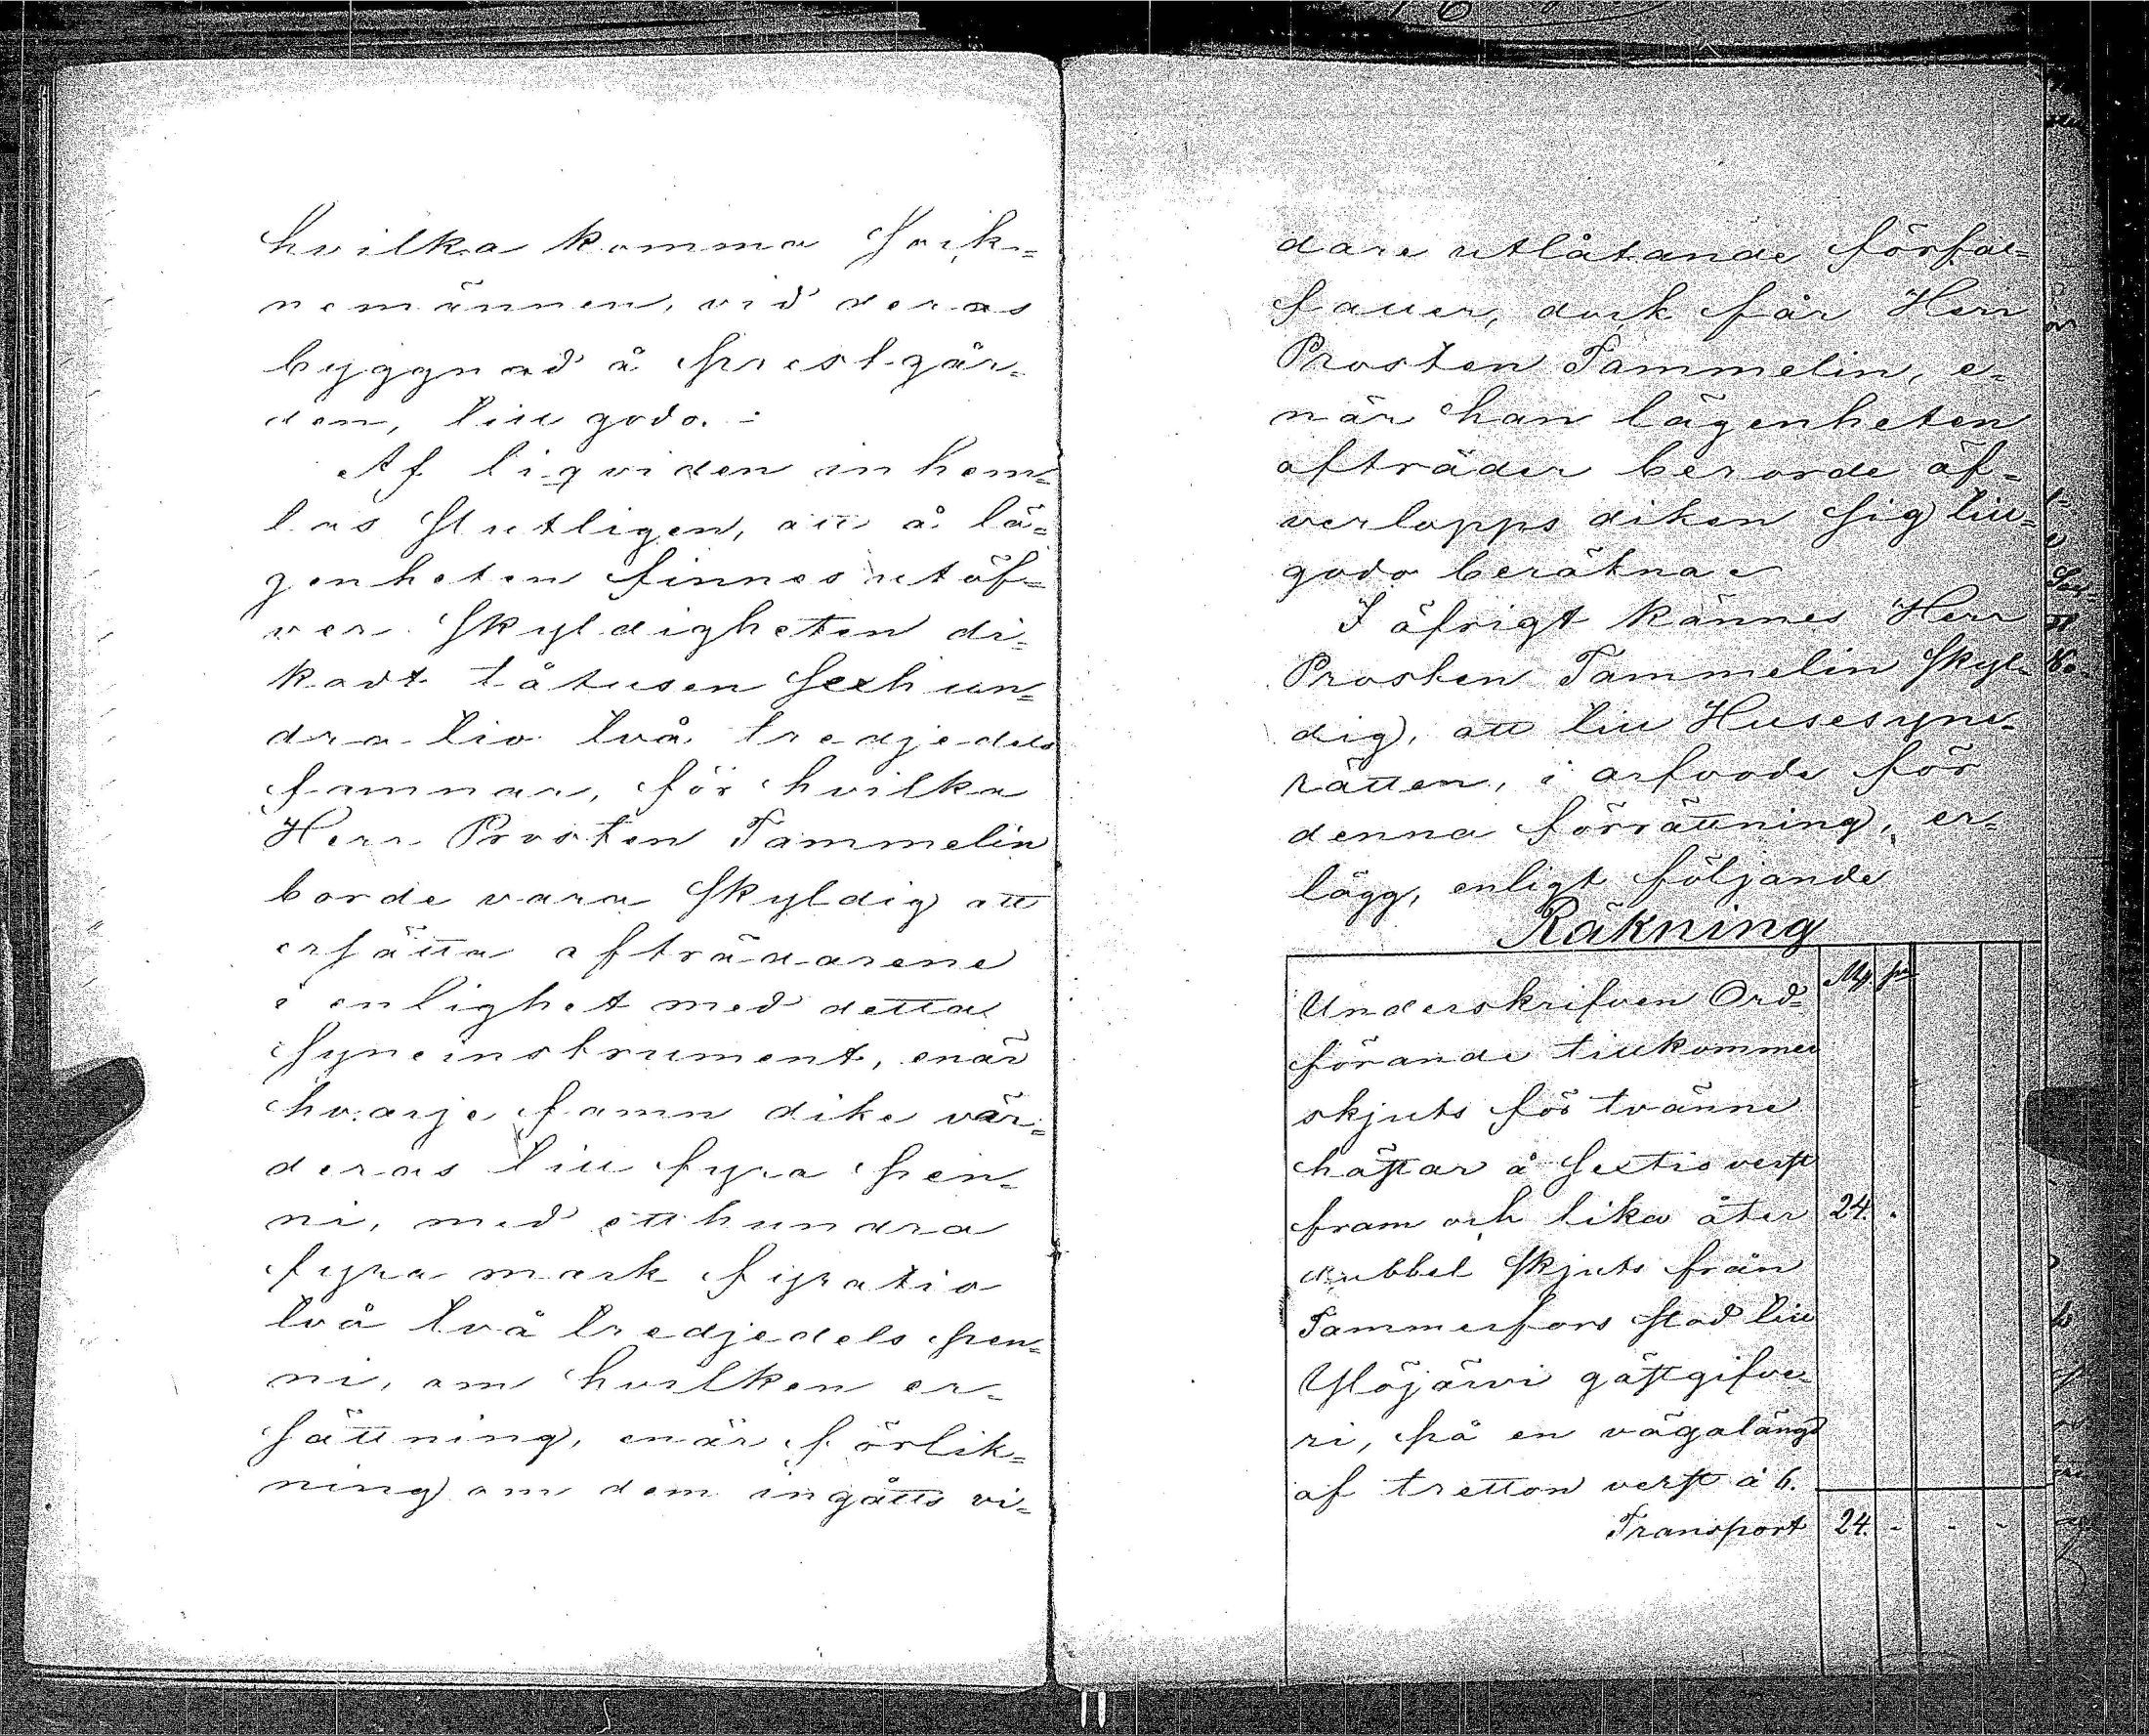 hvilka komma Sock=
nemännen, vid deras
byggnad å prestgår=
den, till godo. -
Af liqviden inhem=
tas slutligen, att å lä=
genheten finnes utöf=
ver skyldigheten di=
kadt tåtusen sexhun=
dra tio två tredjedels
famnar, för hvilka
Herr Prosten Tammelin
borde vara skyldig att
ersätta afträdarene
i enlighet med detta
syneinstrument, enär
hvarje famn dike vär=
deras till fyra pen=
ni, med etthundra
fyra mark fyratio
två två tredjedels pen=
ni, om hvilken er=
sättning, enär förlik=
ning om dem ingåtts vi=
dare utlåtande förfal=
faller, dock får Herr
Prosten Tammelin, e=
när han lägenheten
afträder berorde öf=
verlopps diken sig till=
godo beräkna
I öfrigt kännes Herr
Prosten Tammelin skyl=
dig, att till Husesyns=
rätten, i arfvode för
denna förrättning, er=
lägg, enligt följande
Räkning
Mk pi
Underskrifven Ord=
förande tillkommer
skjuts för tvänne
hästar å sextio verst
fram och lika åter 24. -
dubbel skjuts från
Tammerfors stad till
Ylöjärvi gästgifve=
ri, på en vägalängd
af tretton verst à 6.
Transport 24. - - -